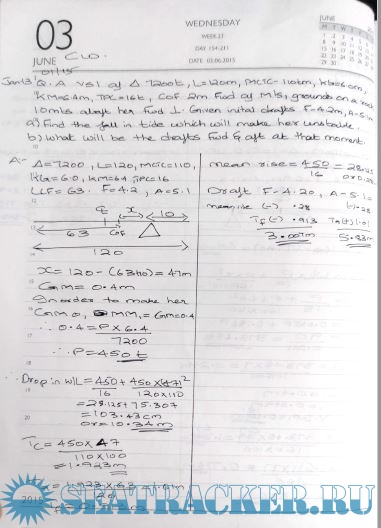 03
JUNE
WEDNESDAY
WEEK 23
DAY 154-211
DATE 03.06.2015
JUNE
01/15
Q. A vsl of Δ 7200t, L=120m, MCTC=110tm, Kb=6.0m,
KM=6.4m, TPC=16t, COF 2m Fwd of M/s, grounds on a rock
10mts abaft her Fwd ⊥. Given initial drafts F=4.2m, A=5.1m
a) Find the fall in tide which will make her unstable.
b) What will be the drafts Fwd & aft at that moment.
A:- Δ=7200, L=120, MCTC=110,
KG=6.0, KM=6.4 TPC=16
LCF=63. F=4.2, A=5.1
x
10
63
COF
120
x = 120-(63+10)=47m
GM=0.4m
In order to make her
GM 0, MM₁=GM=0.4
∴ 0.4 = P x 6.4
7200
∴ P=450 t
∴ Drop in W/L = 450 + 450 x (47)²
16 120x110
= 28.125 + 75.307
= 103.43cm
or = 10.34m
TC = 450 x 47
110x100
= 1.923m
1.923 x 63
mean rise = 450 = 28.125
16 or 0.28
Draft F-4.20, A-5.1
mean rise (-) .28 (-).28
Tf (-) .913
3.007m 5.83m
2015
SEATRACKER.RU